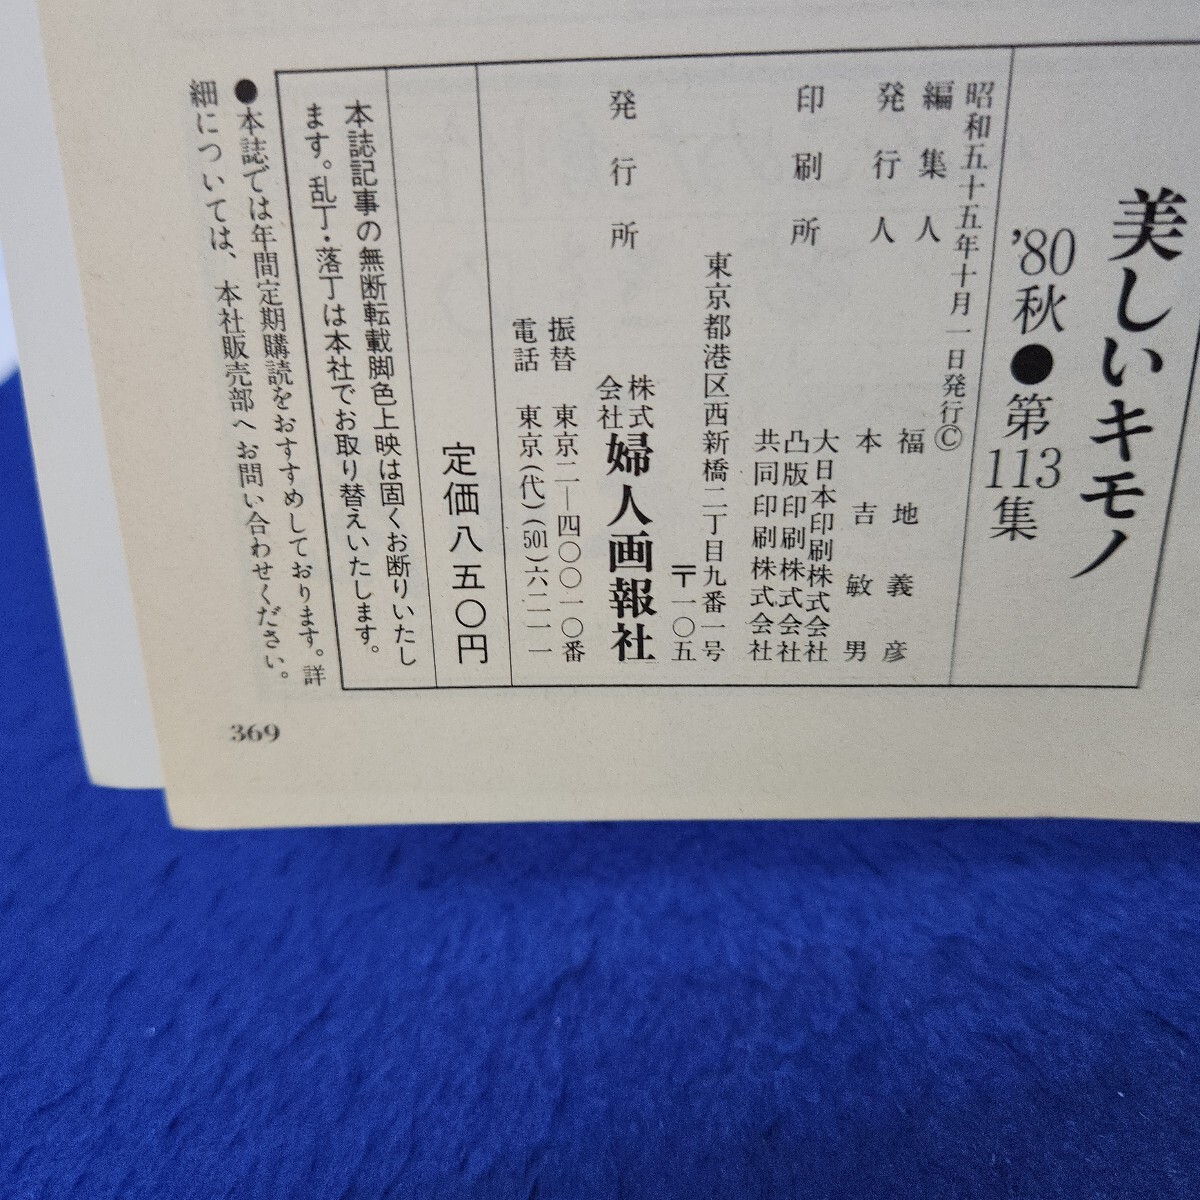 美しいキモノ
’80秋●第113集
昭和五十五年十月一日発行©
編集人　福地義彦
発行人　本吉敏男
印刷所　大日本印刷株式会社
凸版印刷株式会社
共同印刷株式会社
東京都港区西新橋二丁目九番一号
〒一〇五
発行所　株式会社婦人画報社
振替　東京二―四〇〇一〇番
電話　東京(代)(501)六二一一
定価八五〇円
本誌記事の無断転載脚色上映は固くお断りいたし
ます。乱丁・落丁は本社でお取り替えいたします。
●本誌では年間定期購読をおすすめしております。詳
細については、本社販売部へお問い合わせください。
369